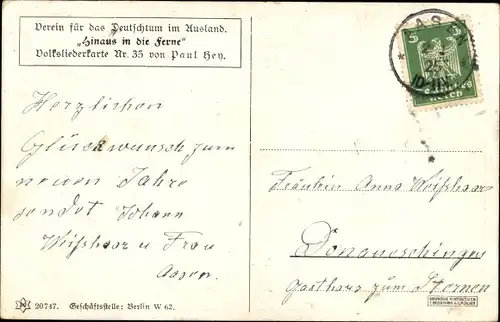 Verein für das Deutschtum im Ausland.
„Hinaus in die Ferne"
Volksliederkarte Nr. 35 von Paul Hey.
Herzlichen
Glückwunsch zum
neuen Jahre
sendet Johann
Weißhaar u Frau
Aasen.
20747. Geschäftsstelle: Berlin W 62.
AAS
5 5
Reich
Fräulein Anna Weißhaar
Donaueschingen
Gasthaus zum Sternen